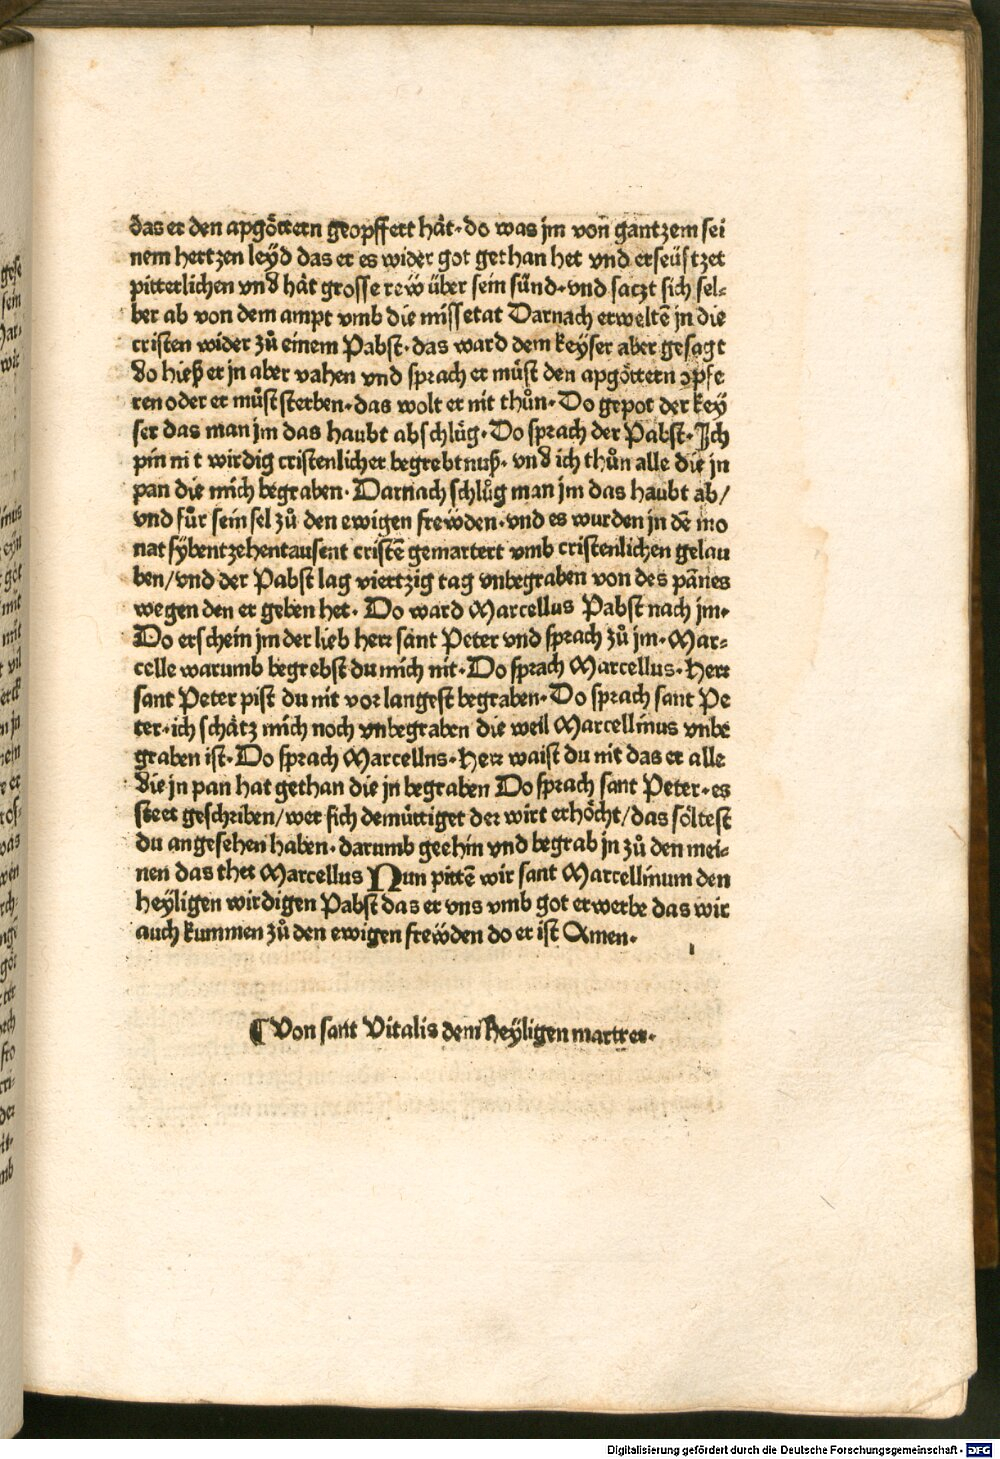 das er den apgöttern geopffert hät· do was jm von gantzem sei
nem hertzen leÿd das er es wider got gethan het vnd erseüftzet
pitterlichen vnd hät grosse reẅ über sein sünd· vnd saczt sich sel⸗
ber ab von dem ampt vmb die missetat Darnach erweltē jn die
cristen wider zů einem Pabst· das ward dem keyser aber gesagt
do hieß er jn aber vahen vnd sprach er müst den apgöttern opfe
ren oder er müst sterben· das wolt er nit thůn· Do gepot der key
ser das man jm das haubt abschlüg· Do sprach der Pabst· Ich
pin nit wirdig cristenlicher begrebtnuß· vnd ich thůn alle die jn
pan die mich begraben· Darnach schlůg man jm das haubt ab/
vnd für sein sel zů den ewigen freẅden· vnd es wurden jn dē mo
nat sÿbentzehentausent cristē gemartert vmb cristenlichen gelau
ben/vnd der Pabst lag viertzig tag vnbegraben von des pānes
wegen den er geben het· Do ward Marcellus Pabst nach jm·
Do erschein jm der lieb herr sant Peter vnd sprach zů jm· Mar⸗
celle warumb begrebst du mich nit· Do sprach Marcellus· Herr
sant Peter pist du nit vor langest begraben· Do sprach sant Pe
ter· ich schätz mich noch vnbegraben die weil Marcellinus vnbe
graben ist· Do sprach Marcellns· Herr waist du nit das er alle
die jn pan hat gethan die jn begraben Do sprach sant Peter· es
steet geschriben/wer sich demüttiget der wirt erhöcht/das söltest
du angesehen haben· darumb geehin vnd begrab jn zů den mei⸗
nen das thet Marcellus Nun pittē wir sant Marcellinum den
heÿligen wirdigen Pabst das er vns vmb got erwerbe das wir
auch kummen zů den ewigen freẅden do er ist Amen·
¶ Von sant Vitalis dem heÿligen martrer·
Digitalisierung gefördert durch die Deutsche Forschungsgemeinschaft - DFG